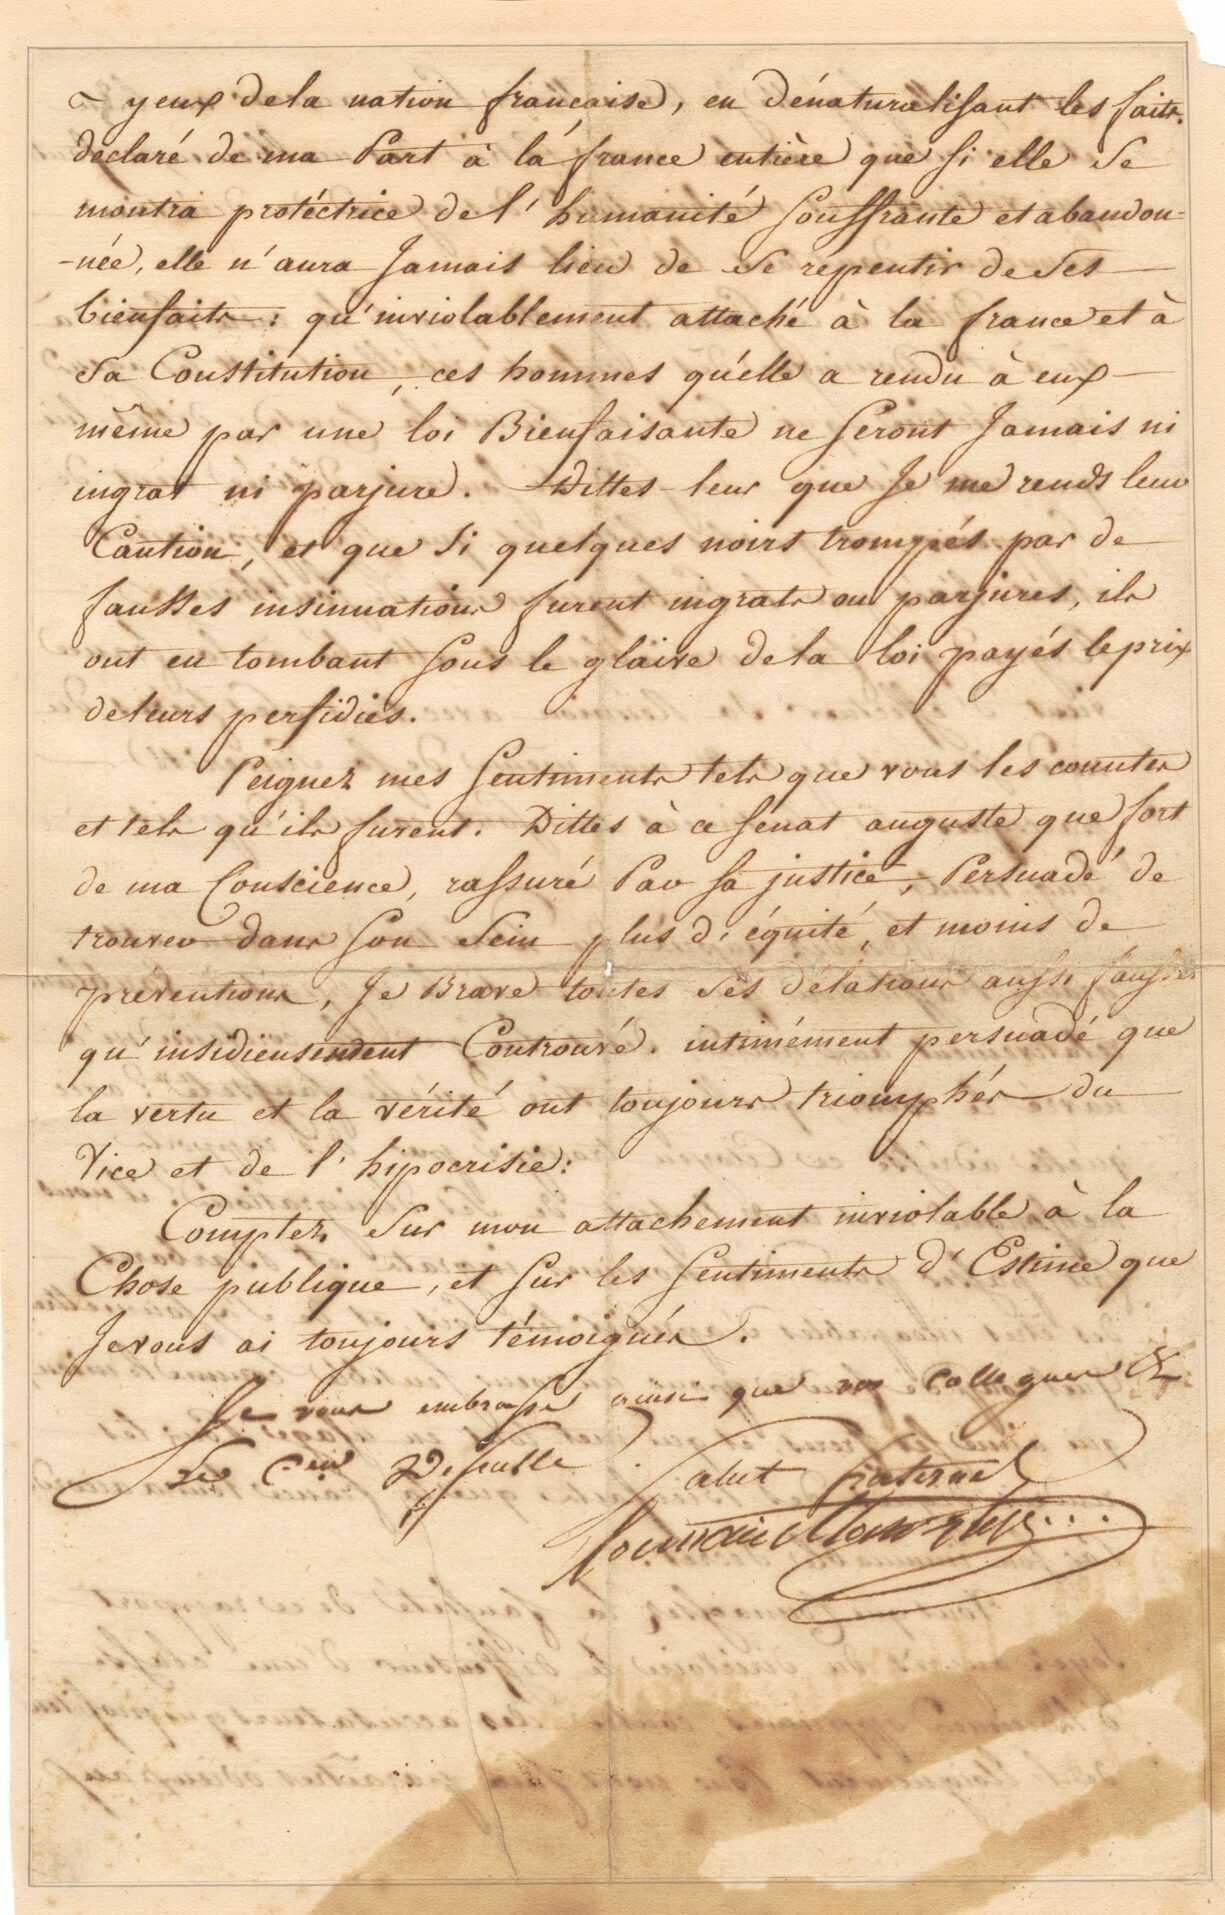 yeux de la nation française, en dénaturalisant les faits.
déclaré de ma Part à la france entière que si elle se
montra protéctrice de l'humanité souffrante et abandon=
-née, elle n'aura Jamais lieu de se répentir de ses
bienfaits: qu'inviolablement attaché à la france et à
sa Constitution, ces hommes qu'elle a rendu à eux
même par une loi Bienfaisante ne seront Jamais ni
ingrat ni parjure. Dittes-leur que Je me rends leur
Caution, et que si quelques noirs trompés par de
fausses insinuations furent ingrats ou parjures, ils
ont en tombant sous le glaive de la loi payés le prix
de leurs perfidies.
Peignez mes sentiments tels que vous les connutes
et tels qu'ils furent. Dittes à ce senat auguste que fort
de ma Conscience, rassuré Par sa justice, Persuadé de
trouver dans son sein plus d'équité, et moins de
préventions, Je Brave toutes ses délations aussi fausses
qu'insidieusement Controuvé. intimément persuadé que
la vertu et la vérité ont toujours triomphés du
Vice et de l'hipocrisie:
Comptez sur mon attachement inviolable à la
Chose publique, et sur les sentiments d'Estime que
Je vous ai toujours témoignés.
Je vous embrasse ainsi que vos collegues &
Salut fraternel
Toussaint Louverture